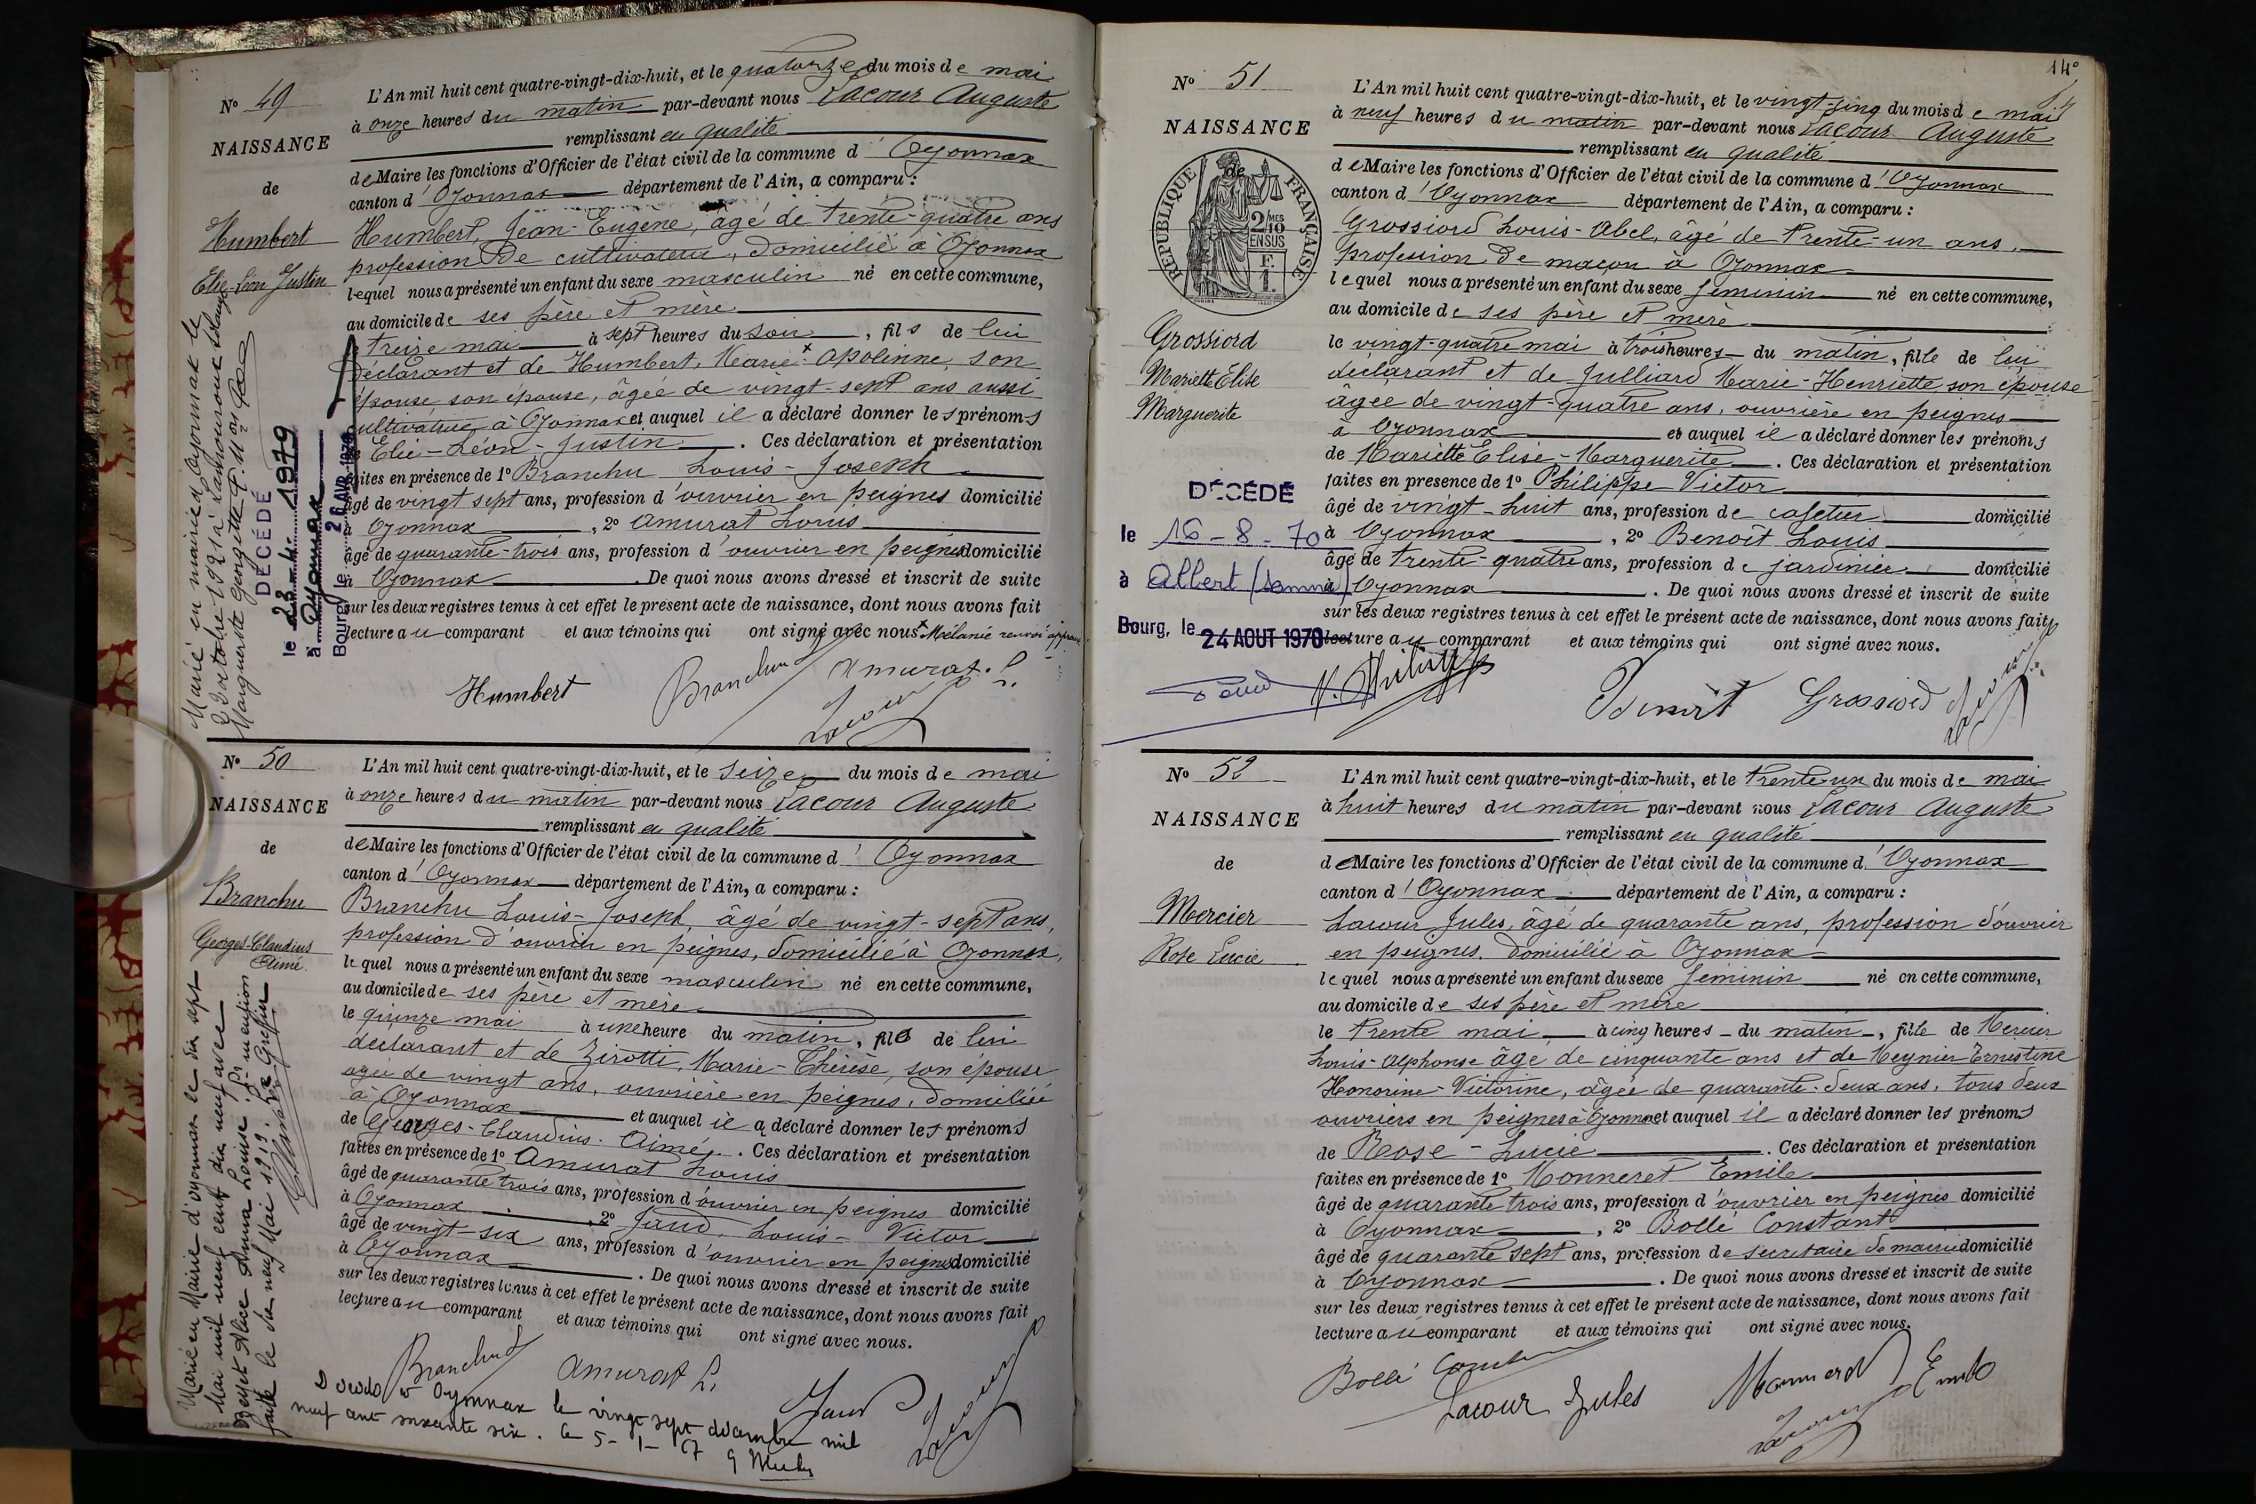 Nº 49
NAISSANCE
de
Humbert
Elie-Léon Justin
L'An mil huit cent quatre-vingt-dix-huit, et le quatorze du mois de mai
à onze heures du matin par-devant nous Lacour Auguste
remplissant en qualité
de Maire les fonctions d'Officier de l'état civil de la commune d'Oyonnax
canton d'Oyonnax département de l'Ain, a comparu :
Humbert, Jean-Eugène, âgé de trente-quatre ans
profession de cultivateur, domicilié à Oyonnax
lequel nous a présenté un enfant du sexe masculin né en cette commune,
au domicile de ses père et mère
treize mai à sept heures du soir, fils de lui
déclarant et de Humbert, Marie × Apolinne, son
épouse, son épouse, âgée de vingt-sept ans aussi
cultivatrice à Oyonnax et auquel il a déclaré donner les prénoms
Elie-Léon-Justin. Ces déclaration et présentation
faites en présence de 1º Branchu Louis-Joseph
âgé de vingt sept ans, profession d'ouvrier en peignes domicilié
à Oyonnax, 2º Amurat Louis
âgé de quarante-trois ans, profession d'ouvrier en peignes domicilié
à Oyonnax. De quoi nous avons dressé et inscrit de suite
sur les deux registres tenus à cet effet le présent acte de naissance, dont nous avons fait
lecture au comparant et aux témoins qui ont signé avec nous × Mélanie renvoi approuvé
Humbert Branchu Amurat L.
Lacour
Marié en mairie d'Oyonnax le
octobre 1921 à
Marguerite Georgette
DÉCÉDÉ
le 23.4.1979
à Oyonnax
Bourg, le 26 AVR. 1979
Nº 50
NAISSANCE
de
Branchu
Georges-Claudius
Aimé.
L'An mil huit cent quatre-vingt-dix-huit, et le seize du mois de mai
à onze heures du matin par-devant nous Lacour Auguste
remplissant en qualité
de Maire les fonctions d'Officier de l'état civil de la commune d'Oyonnax
canton d'Oyonnax département de l'Ain, a comparu :
Branchu Louis-Joseph, âgé de vingt-sept ans,
profession d'ouvrier en peignes, domicilié à Oyonnax,
lequel nous a présenté un enfant du sexe masculin né en cette commune,
au domicile de ses père et mère
le quinze mai à une heure du matin, fils de lui
déclarant et de Zirotti, Marie-Thérèse, son épouse
âgée de vingt ans, ouvrière en peignes, domiciliée
à Oyonnax et auquel il a déclaré donner les prénoms
de Georges-Claudius-Aimé. Ces déclaration et présentation
faites en présence de 1º Amurat Louis
âgé de quarante trois ans, profession d'ouvrier en peignes domicilié
à Oyonnax, 2º Jaud, Louis-Victor
âgé de vingt-six ans, profession d'ouvrier en peignes domicilié
à Oyonnax. De quoi nous avons dressé et inscrit de suite
sur les deux registres tenus à cet effet le présent acte de naissance, dont nous avons fait
lecture au comparant et aux témoins qui ont signé avec nous.
Branchu Amurat L. Jaud
Lacour
Marié en Mairie d'Oyonnax le dix sept
Mai mil neuf cent dix neuf avec
Alice Anna Louise pr mention
faite le dix neuf Mai 1919. Le Greffier
Décédé à Oyonnax le vingt sept décembre mil
neuf cent soixante six. Le 5-1-67
14º
Nº 51
NAISSANCE
de
RÉPUBLIQUE FRANÇAISE
2/10 MES
EN SUS
F.
1.
Grossiord
Mariette Elise
Marguerite
L'An mil huit cent quatre-vingt-dix-huit, et le vingt-cinq du mois de mai
à neuf heures du matin par-devant nous Lacour Auguste
remplissant en qualité
de Maire les fonctions d'Officier de l'état civil de la commune d'Oyonnax
canton d'Oyonnax département de l'Ain, a comparu :
Grossiord Louis-Abel, âgé de trente-un ans,
profession de maçon à Oyonnax
lequel nous a présenté un enfant du sexe féminin né en cette commune,
au domicile de ses père et mère
le vingt-quatre mai à trois heures du matin, fille de lui
déclarant et de Julliard Marie-Henriette, son épouse
âgée de vingt-quatre ans, ouvrière en peignes
à Oyonnax et auquel il a déclaré donner les prénoms
de Mariette Elise-Marguerite. Ces déclaration et présentation
faites en présence de 1º Philippe Victor
âgé de vingt-huit ans, profession de cafetier domicilié
à Oyonnax, 2º Benoît Louis
âgé de trente-quatre ans, profession de jardinier domicilié
à Oyonnax. De quoi nous avons dressé et inscrit de suite
sur les deux registres tenus à cet effet le présent acte de naissance, dont nous avons fait
lecture au comparant et aux témoins qui ont signé avec nous.
V. Philippe Benoît Grossiord Lacour
DÉCÉDÉ
le 16-8-70
à Albert (Somme)
Bourg, le 24 AOUT 1970
Nº 52
NAISSANCE
de
Mercier
Rose Lucie
L'An mil huit cent quatre-vingt-dix-huit, et le trente-un du mois de mai
à huit heures du matin par-devant nous Lacour Auguste
remplissant en qualité
de Maire les fonctions d'Officier de l'état civil de la commune d'Oyonnax
canton d'Oyonnax département de l'Ain, a comparu :
Lacour Jules, âgé de quarante ans, profession d'ouvrier
en peignes, domicilié à Oyonnax
lequel nous a présenté un enfant du sexe féminin né en cette commune,
au domicile de ses père et mère
le trente mai à cinq heures du matin, fille de Mercier
Louis-Alphonse âgé de cinquante ans et de Meynier Ernestine
Honorine-Victorine, âgée de quarante-deux ans, tous deux
ouvriers en peignes à Oyonnax et auquel il a déclaré donner les prénoms
de Rose-Lucie. Ces déclaration et présentation
faites en présence de 1º Monneret Emile
âgé de quarante trois ans, profession d'ouvrier en peignes domicilié
à Oyonnax, 2º Bollé Constant
âgé de quarante sept ans, profession de secrétaire de mairie domicilié
à Oyonnax. De quoi nous avons dressé et inscrit de suite
sur les deux registres tenus à cet effet le présent acte de naissance, dont nous avons fait
lecture au comparant et aux témoins qui ont signé avec nous.
Bollé Constant Lacour Jules Monneret Emile
Lacour